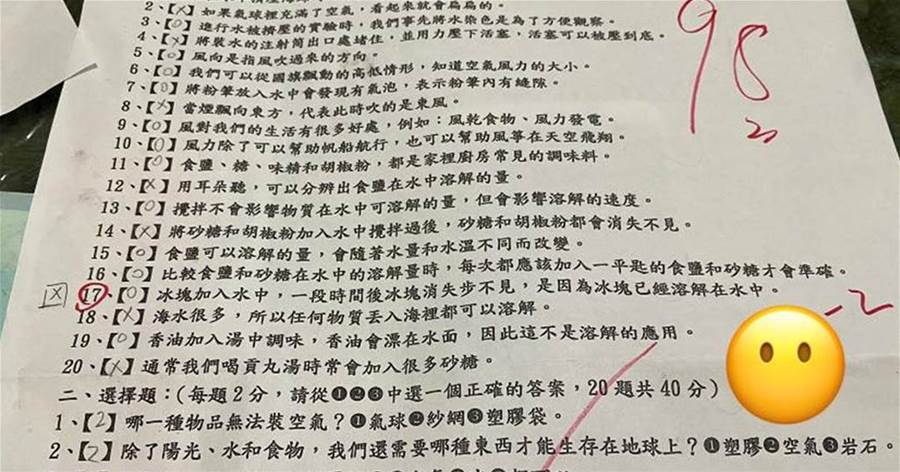 2、【X】如果氣球裡充滿了空氣，看起來就會扁扁的。
3、【O】進行水被擠壓的實驗時，我們事先將水染色是為了方便觀察。
4、【X】將裝水的注射筒出口處堵住，並用力壓下活塞，活塞可以被壓到底。
5、【O】風向是指風吹過來的方向。
6、【O】我們可以從國旗飄動的高低情形，知道空氣風力的大小。
7、【O】將粉筆放入水中會發現有氣泡，表示粉筆內有縫隙。
8、【X】當煙飄向東方，代表此時吹的是東風。
9、【O】風對我們的生活有很多好處，例如：風乾食物、風力發電。
10、【O】風力除了可以幫助帆船航行，也可以幫助風箏在天空飛翔。
11、【O】食鹽、糖、味精和胡椒粉，都是家裡廚房常見的調味料。
12、【X】用耳朵聽，可以分辨出食鹽在水中溶解的量。
13、【O】攪拌不會影響物質在水中可溶解的量，但會影響溶解的速度。
14、【X】將砂糖和胡椒粉加入水中攪拌過後，砂糖和胡椒粉都會消失不見。
15、【O】食鹽可以溶解的量，會隨著水量和水溫不同而改變。
16、【O】比較食鹽和砂糖在水中的溶解量時，每次都應該加入一平匙的食鹽和砂糖才會準確。
X 17、【O】冰塊加入水中，一段時間後冰塊消失步不見，是因為冰塊已經溶解在水中。
18、【X】海水很多，所以任何物質丟入海裡都可以溶解。
19、【O】香油加入湯中調味，香油會漂在水面，因此這不是溶解的應用。
20、【X】通常我們喝貢丸湯時常會加入很多砂糖。
二、選擇題：（每題2分，請從❶❷❸中選一個正確的答案，20題共40分）
1、【2】哪一種物品無法裝空氣？❶氣球❷紗網❸塑膠袋。
2、【2】除了陽光、水和食物，我們還需要哪種東西才能生存在地球上？❶塑膠❷空氣❸岩石。
98
-2